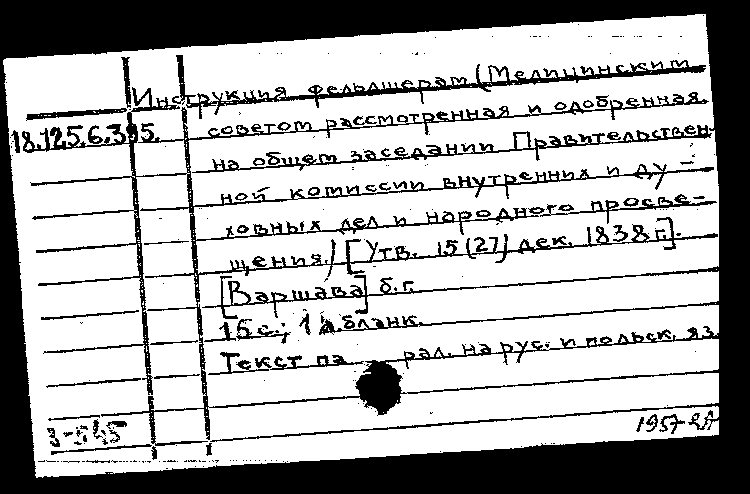 Инструкция фельдшерам (Медицинским
18.125.6.395. советом рассмотренная и одобренная
на общем заседании Правительствен-
ной комиссии внутренних и ду-
ховных дел и народного просве-
щения.) [Утв. 15 (27) дек. 1838 г.].
[Варшава] б.г.
15 с.; 1 л. бланк.
Текст па рал. на рус. и польск. яз.
3-545
1957